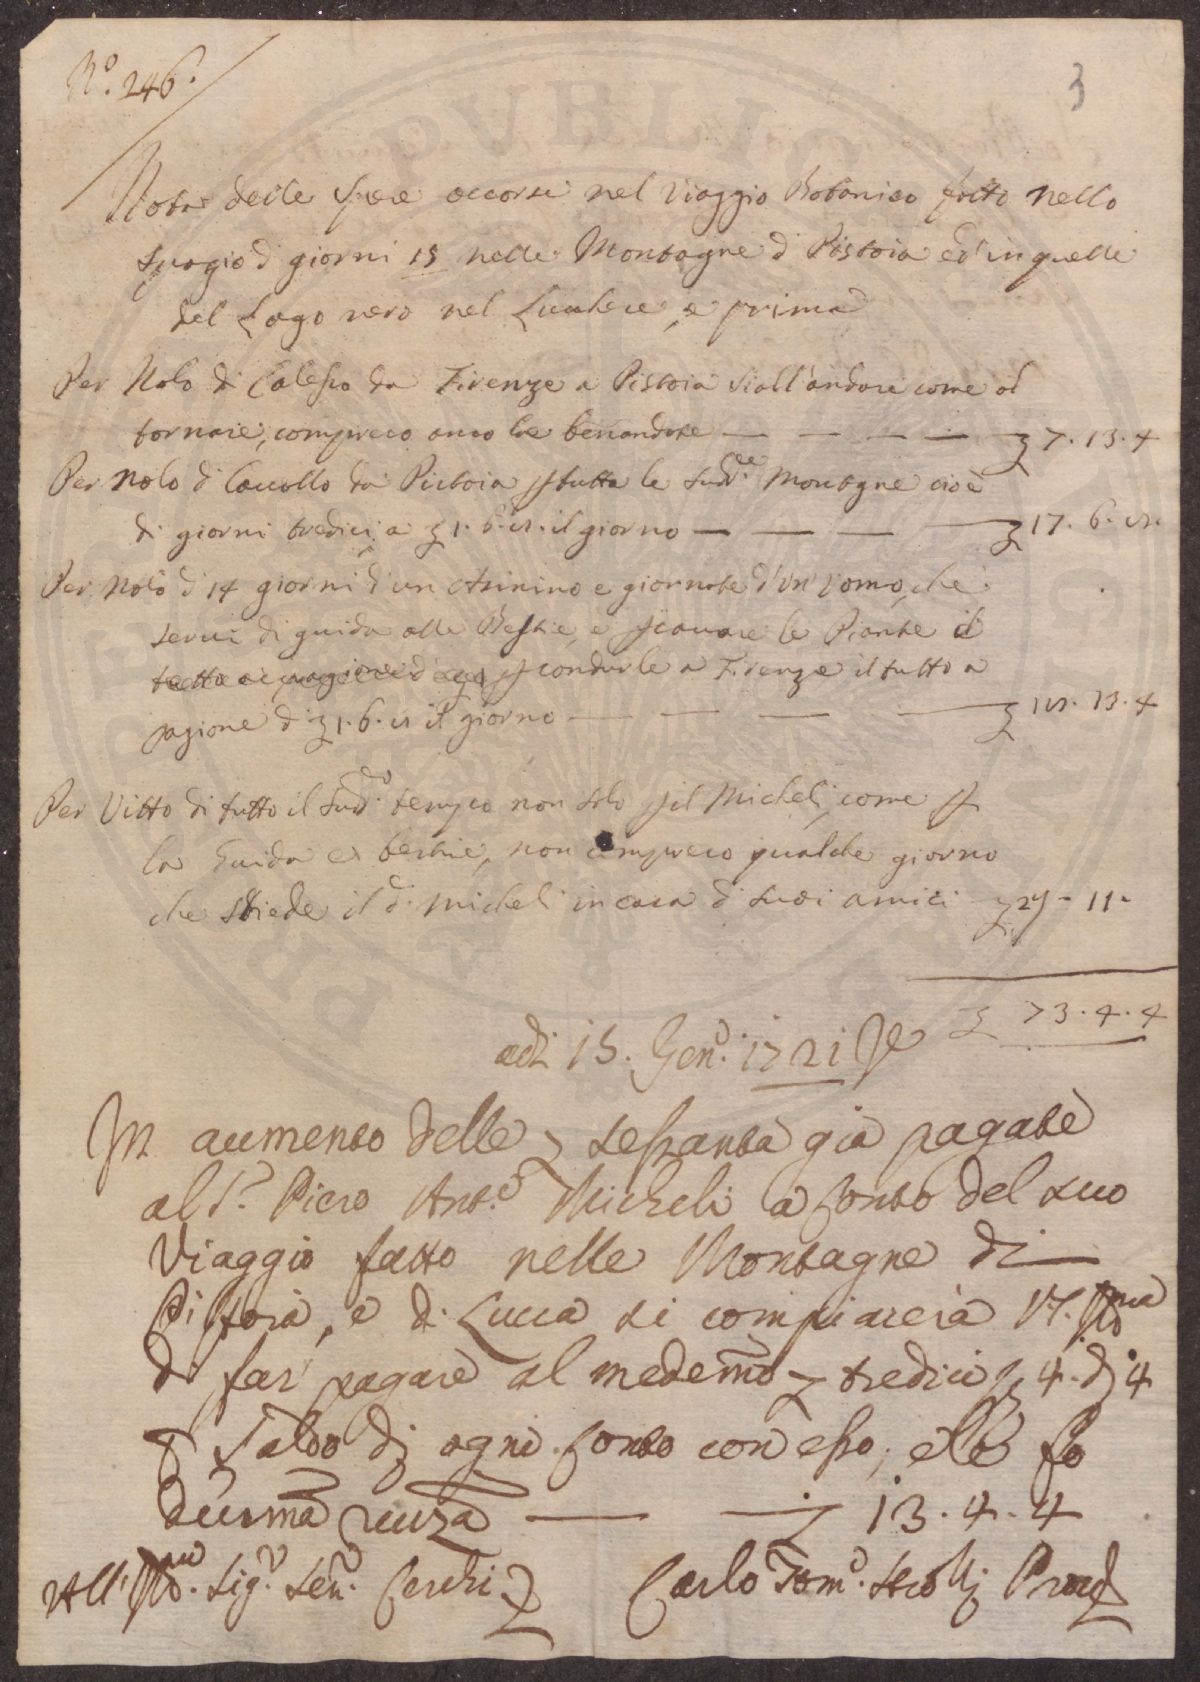 N.º 246.
3
Nota delle spese occorse nel Viaggio Botanico fatto nello
spazio di giorni 15 nelle Montagne di Pistoia ed in quelle
del Lago nero nel Lucchese, e prima
Per Nolo di Calesso da Firenze a Pistoia sì all'andare come al
tornare, compreso anco le benandate — — — — — 7. 13. 4
Per Nolo di Cavallo da Pistoia p tutte le sudd.e Montagne cioè
di giorni tredici, a 1. 6. 8. il giorno — — — — 17. 6. 8.
Per Nolo di 14 giorni d'un Asinino e giornate d'un' omo, che
servì di guida alle Bestie, e p cavare le Piante il
p condurle a Firenze il tutto a
ragione di 1. 6. 8 il giorno — — — — 18. 13. 4
Per Vitto di tutto il sud.o tempo non solo p il Micheli, come p
la Guida e bestie, non compreso qualche giorno
che stiede il d. Micheli in casa di suoi amici 29 - 11 -
73. 4. 4
adi 15. Gen.o 1721
In aumento delle sessanta già pagate
al S.r Piero Ant.o Micheli a conto del suo
Viaggio fatto nelle Montagne di
Pistoia, e di Lucca si compiacerà V.S. Ill.ma
di far' pagare al medemo tredici 4. d 4
p saldo di ogni conto con esso, e le fo
— — 13. 4. 4
All' Ill.mo Sig.r Sen.e Cerchi
Carlo Tom.o Prov.